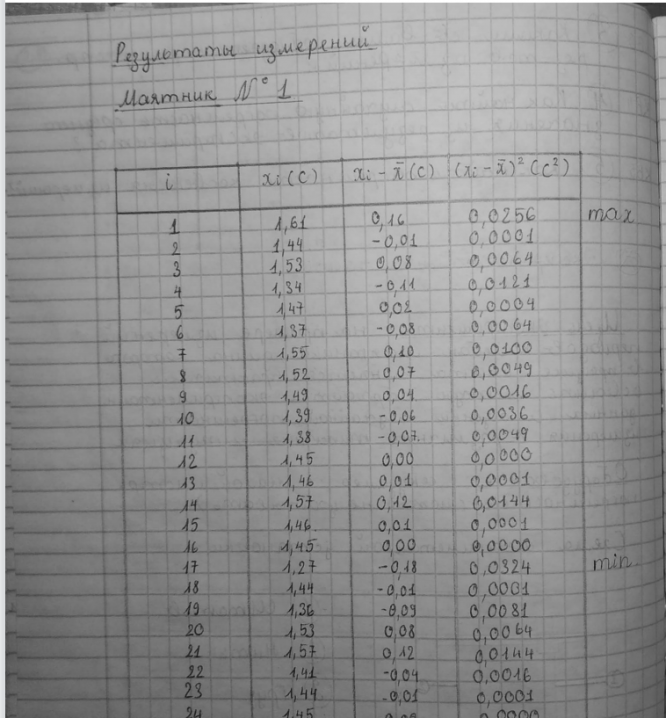 Результаты измерений
Маятник N° 1
i xi (с) xi - x̄ (с) (xi - x̄)² (с²)
1 1,61 0,16 0,0256 max
2 1,44 -0,01 0,0001
3 1,53 0,08 0,0064
4 1,34 -0,11 0,0121
5 1,47 0,02 0,0004
6 1,37 -0,08 0,0064
7 1,55 0,10 0,0100
8 1,52 0,07 0,0049
9 1,49 0,04 0,0016
10 1,39 -0,06 0,0036
11 1,38 -0,07 0,0049
12 1,45 0,00 0,0000
13 1,46 0,01 0,0001
14 1,57 0,12 0,0144
15 1,46 0,01 0,0001
16 1,45 0,00 0,0000
17 1,27 -0,18 0,0324 min
18 1,44 -0,01 0,0001
19 1,36 -0,09 0,0081
20 1,53 0,08 0,0064
21 1,57 0,12 0,0144
22 1,41 -0,04 0,0016
23 1,44 -0,01 0,0001
24 1,45 0,00 0,0000